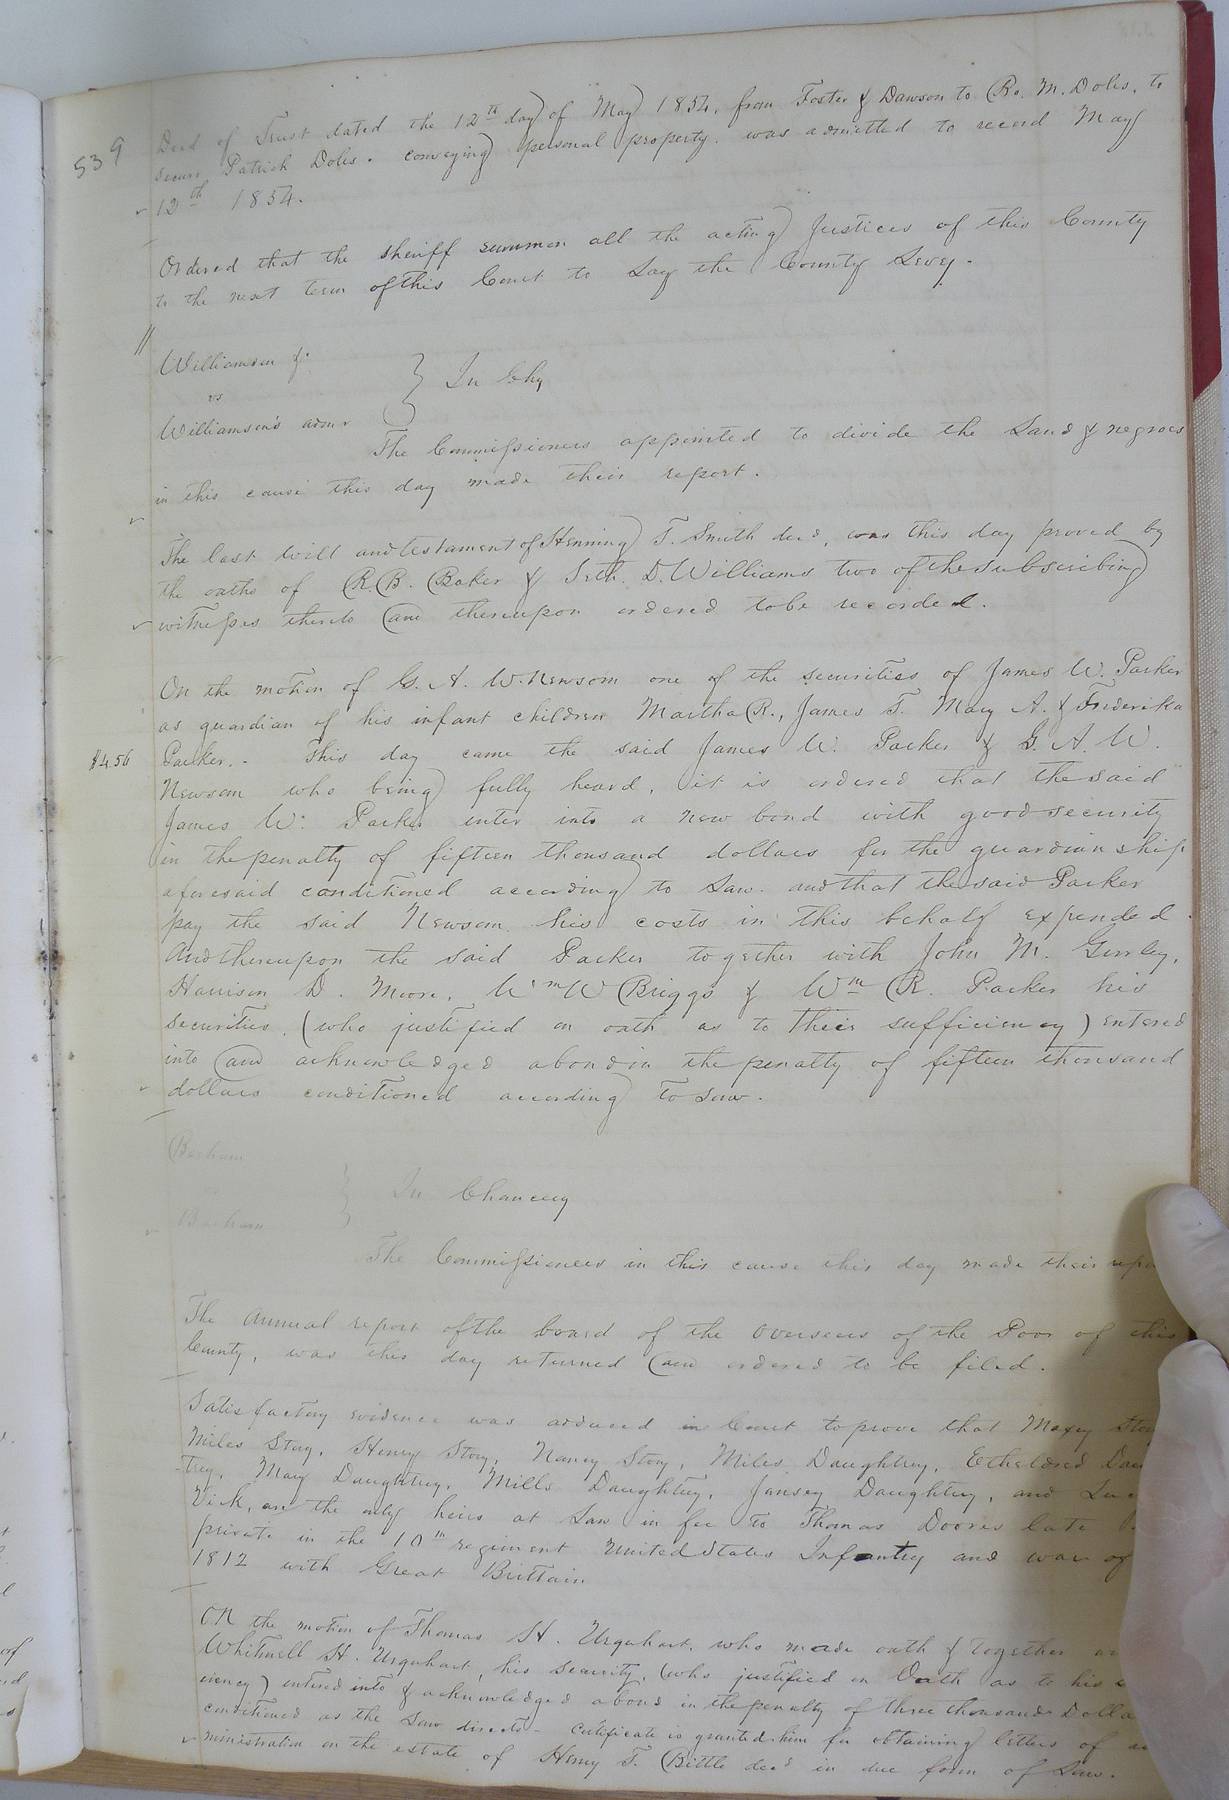 539
Deed of Trust dated the 12th day of May 1854, from Foster & Dawson to Ro. M. Doles, to
secure Patrick Doles. conveying personal property. was admitted to record May
12th 1854.
Ordered that the sheriff summon all the acting Justices of this County
to the next term of this Court to Lay the County Levy.
Williamson &
vs
Williamson's admr
In Chy
The Commissioners appointed to divide the Land & negroes
in this cause this day made their report.
The last will and testament of Henning T. Smith decd, was this day proved by
the oaths of R. B. Baker & Seth. D. Williams two of the subscribing
witnesses thereto and thereupon ordered to be recorded.
On the motion of G. A. W. Newsom one of the securities of James W. Parker
as guardian of his infant children Martha R., James T. Mary A. & Frederika
$4.56
Parker. - This day came the said James W. Parker & G. A. W.
Newsom who being fully heard, it is ordered that the said
James W. Parker enter into a new bond with good security
in the penalty of fifteen thousand dollars for the guardianship
aforesaid conditioned according to Law. and that the said Parker
pay the said Newsom his costs in this behalf expended.
And thereupon the said Parker together with John M. Gurley,
Harrison D. Moore, Wm W Briggs & Wm R. Parker his
securities, (who justified on oath as to their sufficiency) entered
into and acknowledged a bond in the penalty of fifteen thousand
dollars conditioned according to Law.
Barham
Barham
In Chancery
The Commissioners in this cause this day made their repo
The Annual report of the board of the Overseers of the Poor of this
County, was this day returned and ordered to be filed.
Satisfactory evidence was adduced in Court to prove that Story
Miles Story, Henry Story, Nancy Story, Miles Daughtrey, Etheldred Dau
-trey, Mary Daughtrey, Mills Daughtrey, Daughtrey, and
Vick, are the only heirs at Law in fee to Thomas Doores late
private in the 10th regiment United States Infantry and war of
1812 with Great Brittain
On the motion of Thomas H. Urquhart, who made oath & together
Whitmell H. Urquhart, his security, (who justified on Oath as to his
ciency) entered into & acknowledged a bond in the penalty of three thousand Dolla
conditioned as the Law directs - certificate is granted him for obtaining letters of
ministration on the estate of Henry T. Bittle decd in due form of Law.